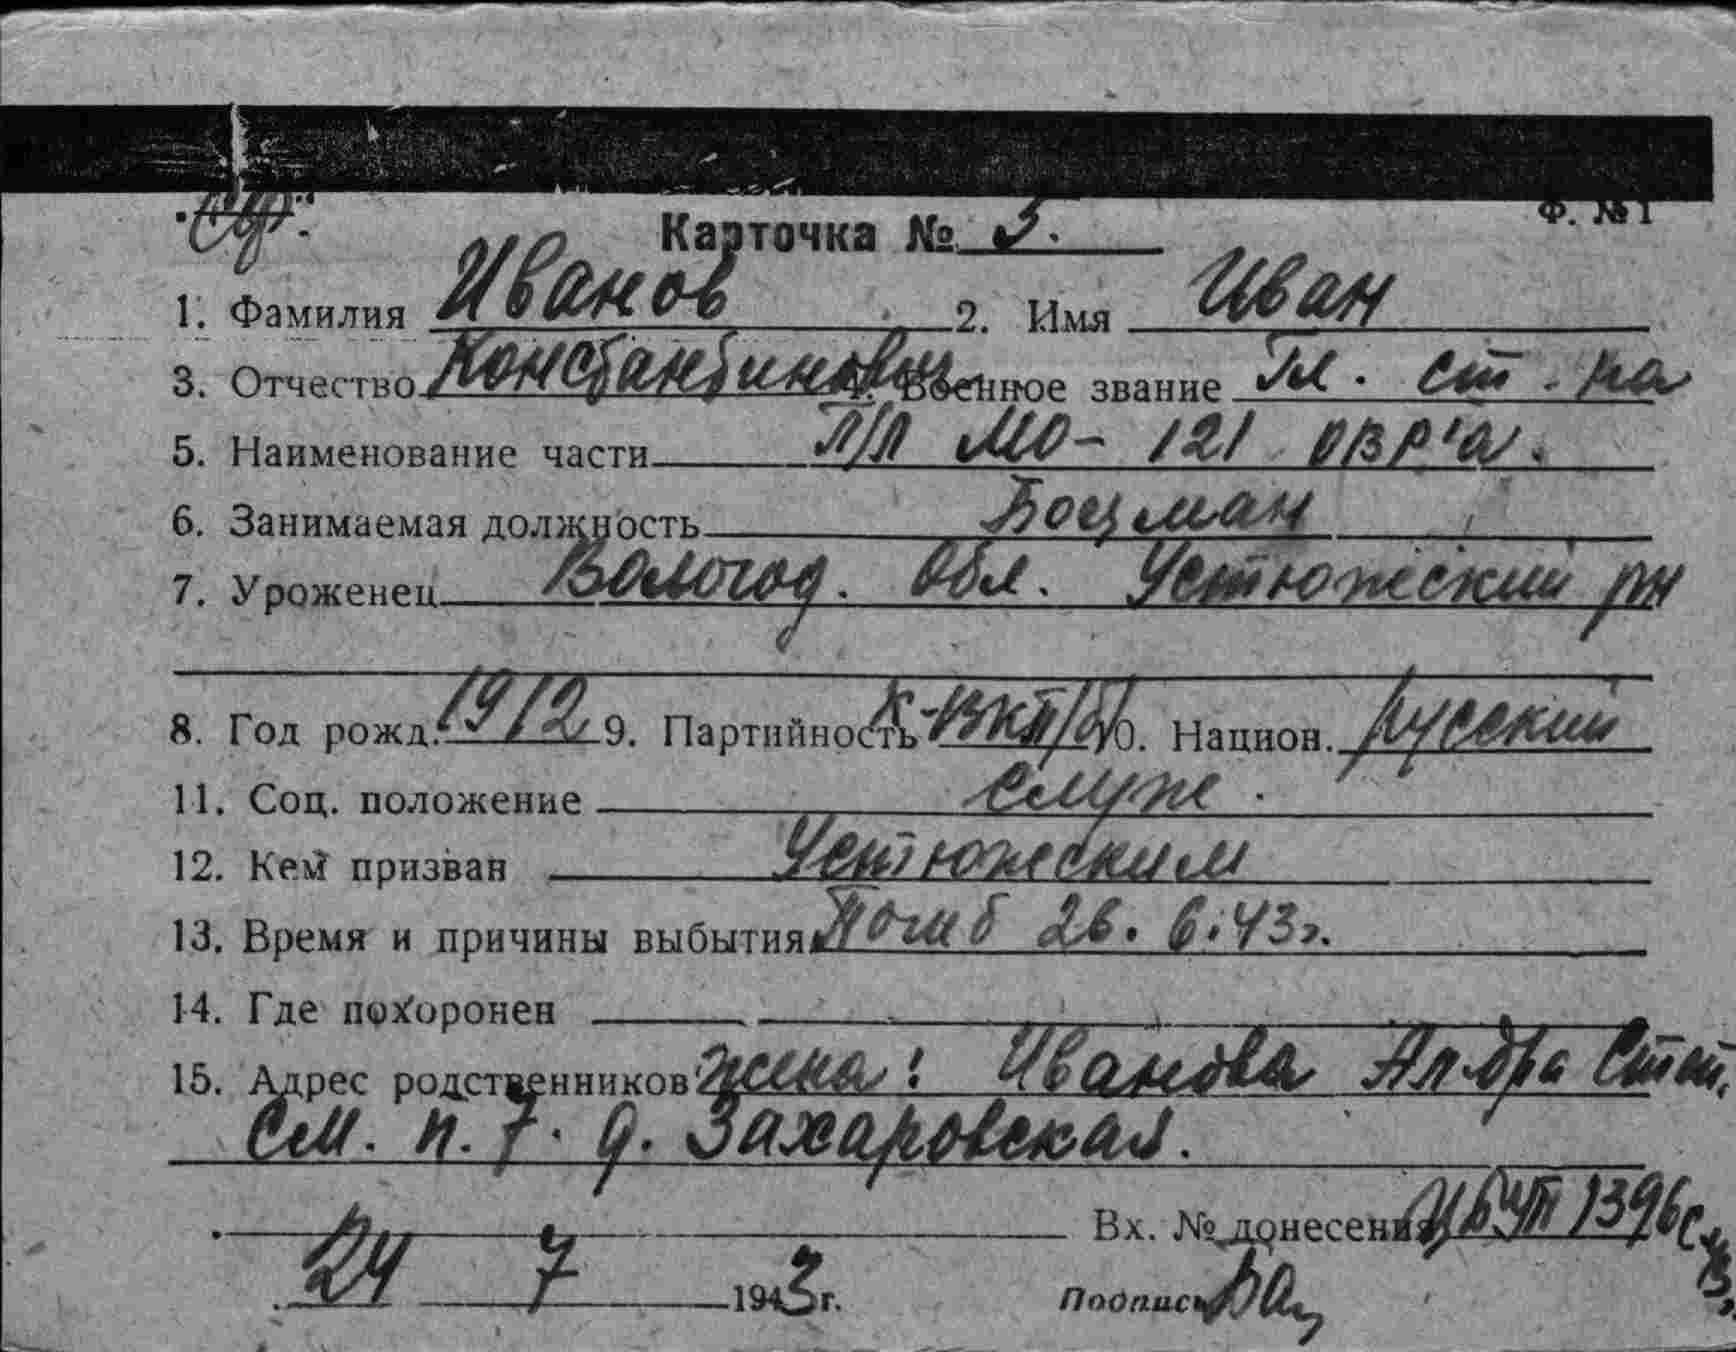 Ф. № 1
Карточка № 5.
1. Фамилия Иванов 2. Имя Иван
3. Отчество Константинович 4. Военное звание Гл. ст-на
5. Наименование части П/П МО-121 ОВР'а.
6. Занимаемая должность Боцман
7. Уроженец Вологод. обл. Устюжеский рн
8. Год рожд. 1912 9. Партийность К-ВКП/б/ 10. Национ. русский
11. Соц. положение служ.
12. Кем призван Устюжеским
13. Время и причины выбытия Погиб 26.6.43г.
14. Где похоронен
15. Адрес родственников жена: Иванова Ал-дра Степ.
см. п. 7. д. Захаровская.
Вх. № донесения 1396с
24 7 1943 г. Подпись